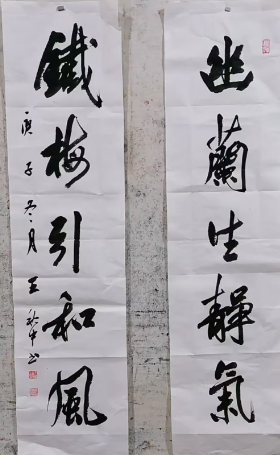 幽蘭生靜氣
鐵梅引和風
庚子冬月王秋中书